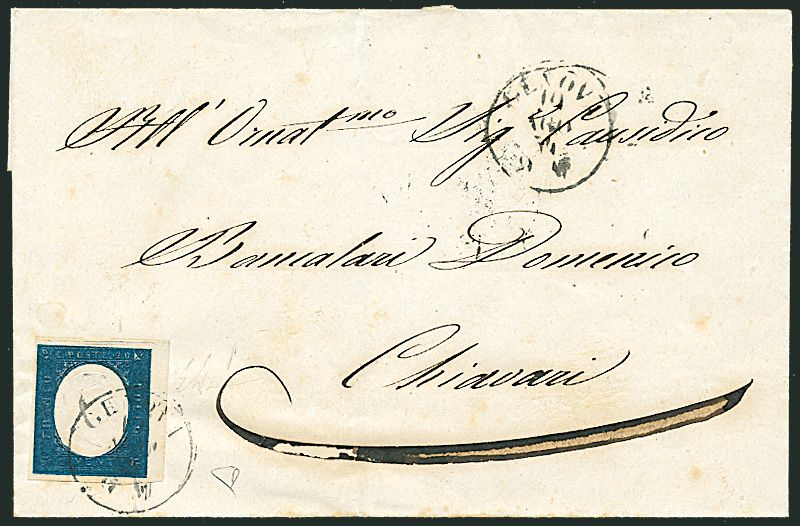 All' Ornat.mo Sig. Causidico
Bancalari Domenico
Chiavari
GENOVA
C. POSTE 20
GENOVA